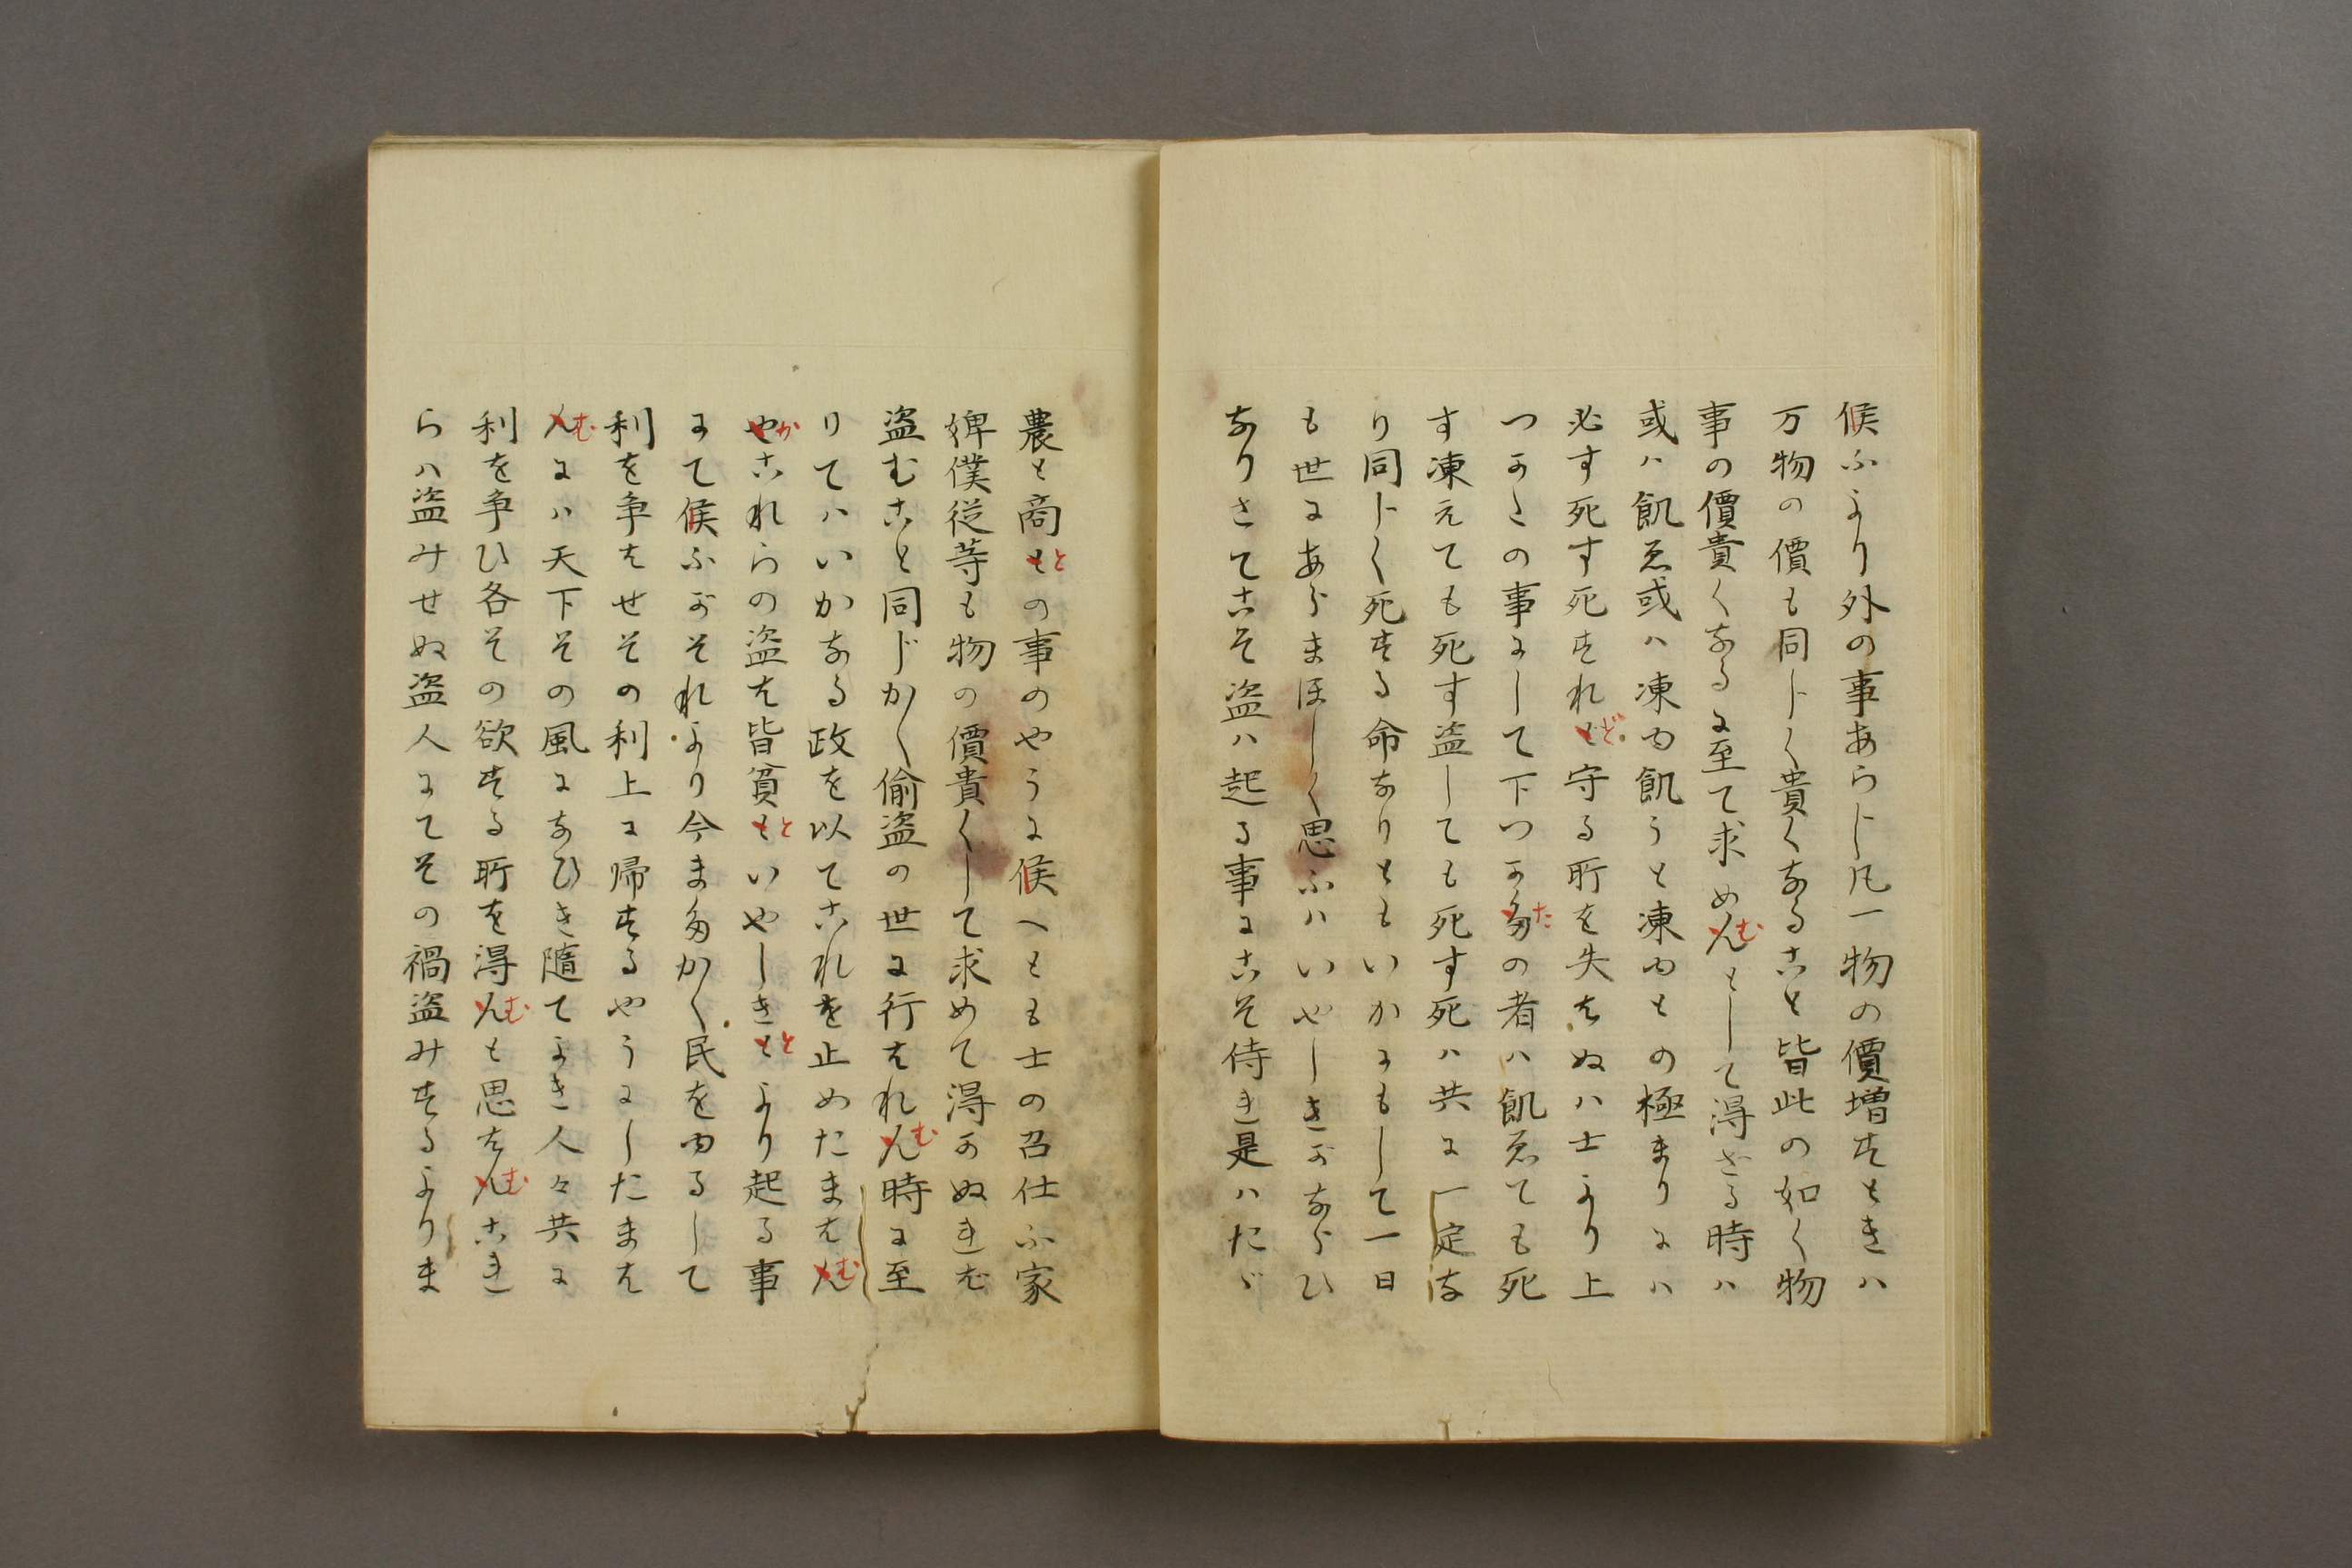 候ふより外の事あらじ凡一物の價増すときハ
万物の價も同じく貴くなること皆此の如く物
事の價貴くなるに至て求めんむとして得ざる時ハ
或ハ飢ゑ或ハ凍ゆ飢うと凍ゆとの極まりにハ
必す死す死すれどど守る所を失はぬハ士より上
つかたの事にして下つかたたの者ハ飢ゑても死
す凍えても死す盗しても死す死ハ共に一定な
り同じく死する命なりともいかにもして一日
も世にあらまほしく思ふハいやしきがならひ
なりさてこそ盗ハ起る事にこそ侍れ是ハたゞ
農と商ととの事のやうに候へとも士の召仕ふ家
婢僕従等も物の價貴くして求めて得かぬれば
盗むこと同じかく偸盗の世に行はれんむ時に至
りてハいかなる政を以てこれを止めたまはんむ
やかこれらの盗は皆貧とといやしきととより起る事
にて候ふがそれより今またかく民をゆるして
利を争はせその利上に帰するやうにしたまは
んむにハ天下その風になひき隨てよき人々共に
利を争ひ各その欲する所を得んむと思はんむこれ
らハ盗みせぬ盗人にてその禍盗みするよりま